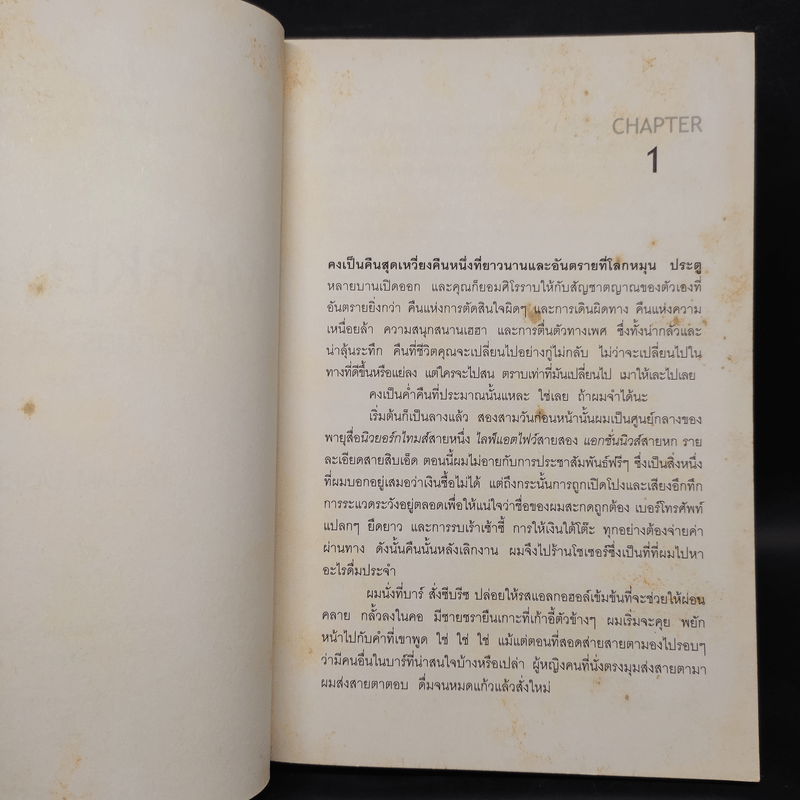 CHAPTER
1
คงเป็นคืนสุดเหวี่ยงคืนหนึ่งที่ยาวนานและอันตรายที่โลกหมุน ประตู
หลายบานเปิดออก และคุณก็ยอมศิโรราบให้กับสัญชาตญาณของตัวเองที่
อันตรายยิ่งกว่า คืนแห่งการตัดสินใจผิดๆ และการเดินผิดทาง คืนแห่งความ
เหนื่อยล้า ความสนุกสนานเฮฮา และการตื่นตัวทางเพศ ซึ่งทั้งน่ากลัวและ
น่าลุ้นระทึก คืนที่ชีวิตคุณจะเปลี่ยนไปอย่างกู่ไม่กลับ ไม่ว่าจะเปลี่ยนไปใน
ทางที่ดีขึ้นหรือแย่ลง แต่ใครจะไปสน ตราบเท่าที่มันเปลี่ยนไป เมาให้เละไปเลย
คงเป็นค่ำคืนที่ประมาณนั้นแหละ ใช่เลย ถ้าผมจำได้นะ
เริ่มต้นก็เป็นลางแล้ว สองสามวันก่อนหน้านั้นผมเป็นศูนย์กลางของ
พายุสื่อนิวยอร์กไทมส์สายหนึ่ง ไลฟ์แอตไฟว์สายสอง แอกชั่นนิวส์สายหก ราย
ละเอียดสายสิบเอ็ด ตอนนี้ผมไม่อายกับการประชาสัมพันธ์ฟรีๆ ซึ่งเป็นสิ่งหนึ่ง
ที่ผมบอกอยู่เสมอว่าเงินซื้อไม่ได้ แต่ถึงกระนั้นการถูกเปิดโปงและเสียงอึกทึก
การระแวดระวังอยู่ตลอดเพื่อให้แน่ใจว่าชื่อของผมสะกดถูกต้อง เบอร์โทรศัพท์
แปลกๆ ยืดยาว และการรบเร้าเซ้าซี้ การให้เงินใต้โต๊ะ ทุกอย่างต้องจ่ายค่า
ผ่านทาง ดังนั้นคืนนั้นหลังเลิกงาน ผมจึงไปร้านโชเซอร์ซึ่งเป็นที่ที่ผมไปหา
อะไรดื่มประจำ
ผมนั่งที่บาร์ สั่งซีบรีซ ปล่อยให้รสแอลกอฮอล์เข้มข้นที่จะช่วยให้ผ่อน
คลาย กลั้วลงในคอ มีชายชรายืนเกาะที่เก้าอี้ตัวข้างๆ ผมเริ่มจะคุย พยัก
หน้าไปกับคำที่เขาพูด ใช่ ใช่ ใช่ แม้แต่ตอนที่สอดส่ายสายตามองไปรอบๆ
ว่ามีคนอื่นในบาร์ที่น่าสนใจบ้างหรือเปล่า ผู้หญิงคนที่นั่งตรงมุมส่งสายตามา
ผมส่งสายตาตอบ ดื่มจนหมดแก้วแล้วสั่งใหม่